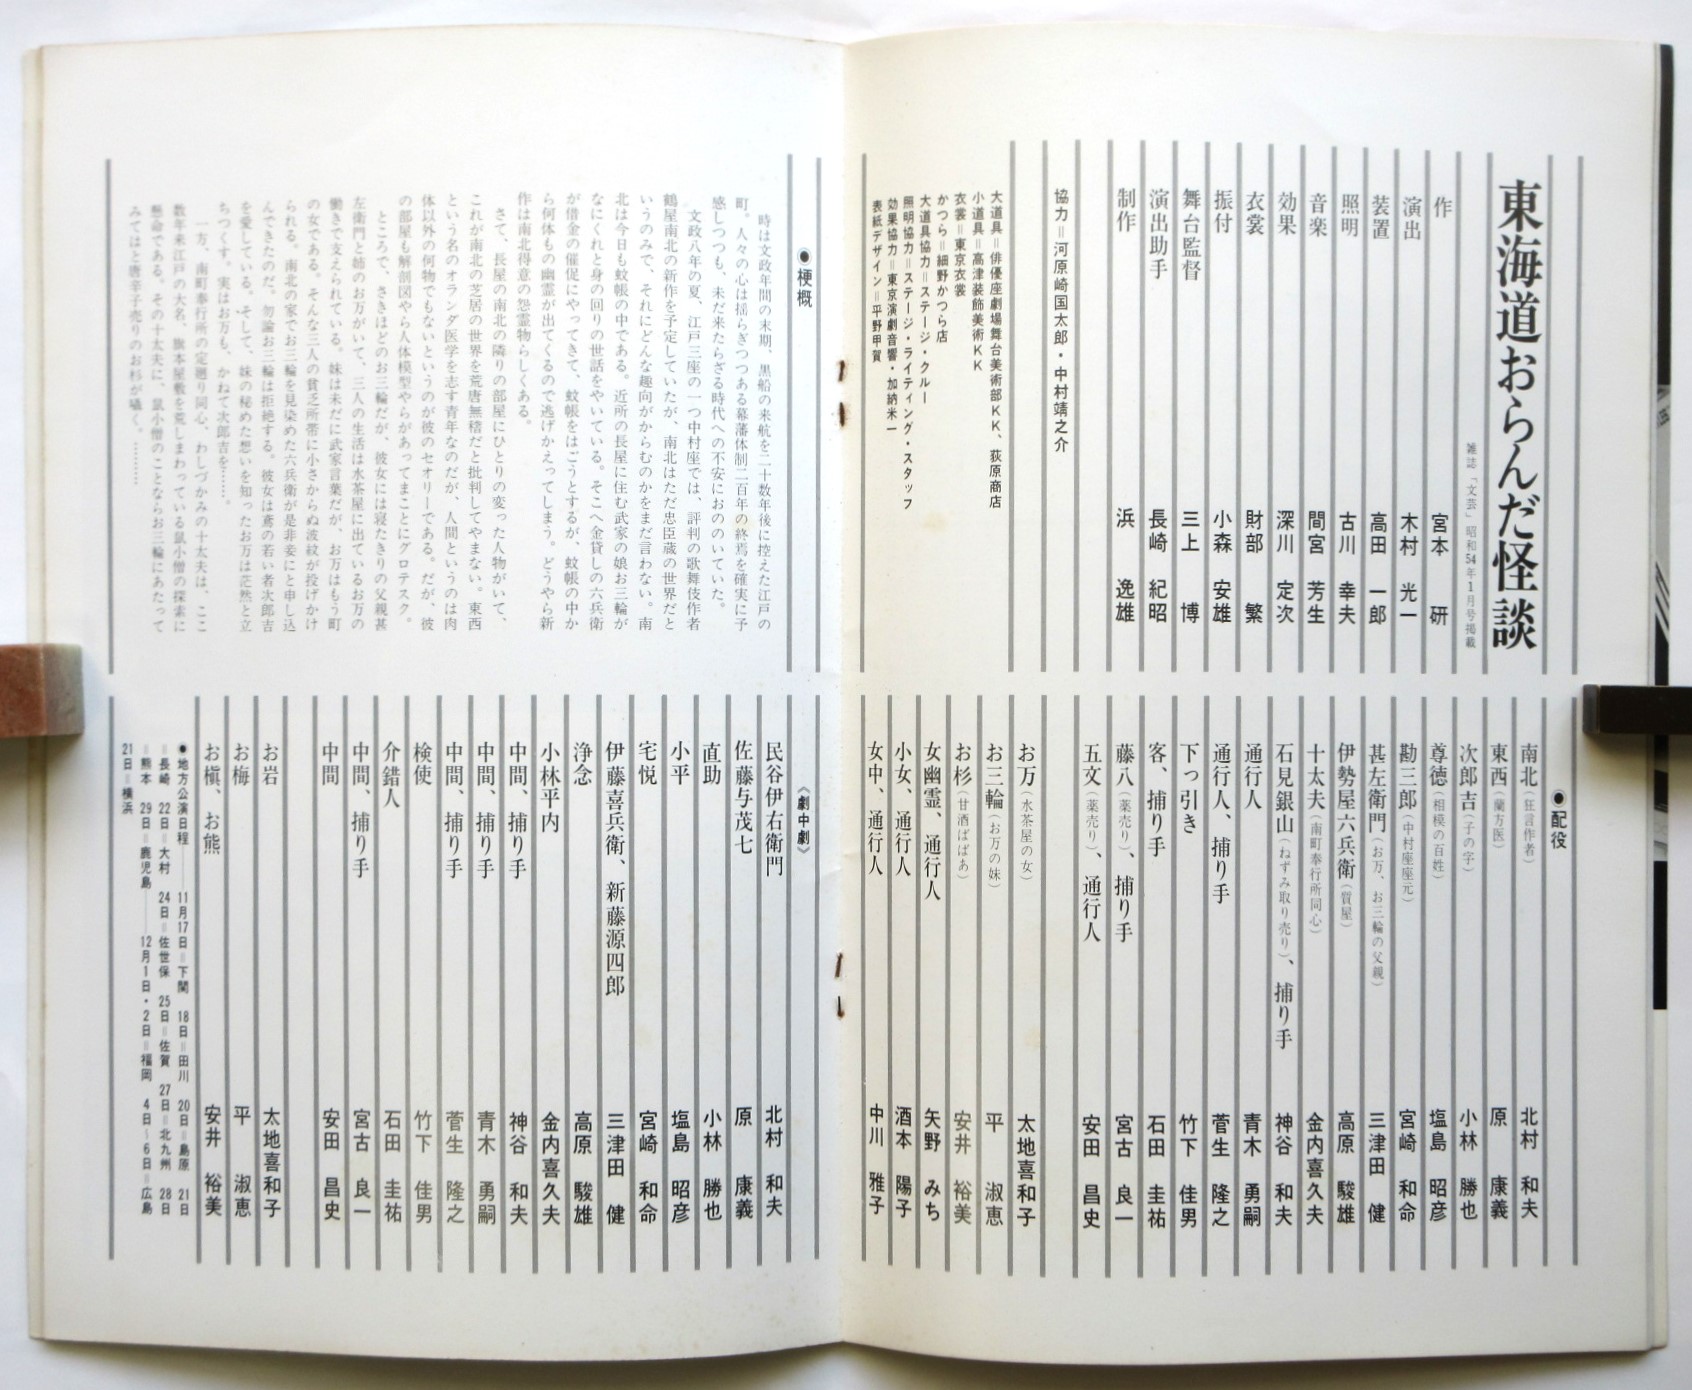 東海道おらんだ怪談
雑誌「文芸」昭和54年1月号掲載
作 宮本 研
演出 木村 光一
装置 高田 一郎
照明 古川 幸夫
音楽 間宮 芳生
効果 深川 定次
衣裳 財部 繁
振付 小森 安雄
舞台監督 三上 博
演出助手 長崎 紀昭
制作 浜 逸雄
協力＝河原崎国太郎・中村靖之介
大道具＝俳優座劇場舞台美術部KK、荻原商店
小道具＝高津装飾美術KK
衣裳＝東京衣裳
かつら＝細野かつら店
大道具協力＝ステージ・クルー
照明協力＝ステージ・ライティング・スタッフ
効果協力＝東京演劇音響・加納米一
表紙デザイン＝平野甲賀
●配役
南北（狂言作者） 北村 和夫
東西（蘭方医） 原 康義
次郎吉（子の字） 小林 勝也
尊徳（相模の百姓） 塩島 昭彦
勘三郎（中村座座元） 宮崎 和命
甚左衛門（お万、お三輪の父親） 三津田 健
伊勢屋六兵衛（質屋） 高原 駿雄
十太夫（南町奉行所同心） 金内喜久夫
石見銀山（ねずみ取り売り）、捕り手 神谷 和夫
通行人 青木 勇嗣
通行人、捕り手 菅生 隆之
下っ引き 竹下 佳男
客、捕り手 石田 圭祐
藤八（薬売り）、捕り手 宮古 良一
五文（薬売り）、通行人 安田 昌史
お万（水茶屋の女） 太地喜和子
お三輪（お万の妹） 平 淑恵
お杉（甘酒ばばあ） 安井 裕美
女幽霊、通行人 矢野 みち
小女、通行人 酒本 陽子
女中、通行人 中川 雅子
●梗概
時は文政年間の末期、黒船の来航を二十数年後に控えた江戸の
町。人々の心は揺らぎつつある幕藩体制二百年の終焉を確実に予
感しつつも、未だ来たらざる時代への不安におののいていた。
文政八年の夏、江戸三座の一つ中村座では、評判の歌舞伎作者
鶴屋南北の新作を予定していたが、南北はただ忠臣蔵の世界だと
いうのみで、それにどんな趣向がからむのかをまだ言わない。南
北は今日も蚊帳の中である。近所の長屋に住む武家の娘お三輪が
なにくれと身の回りの世話をやいている。そこへ金貸しの六兵衛
が借金の催促にやってきて、蚊帳をはごうとするが、蚊帳の中か
ら何体もの幽霊が出てくるので逃げかえってしまう。どうやら新
作は南北得意の怨霊物らしくある。
さて、長屋の南北の隣りの部屋にひとりの変った人物がいて、
これが南北の芝居の世界を荒唐無稽だと批判してやまない。東西
という名のオランダ医学を志す青年なのだが、人間というのは肉
体以外の何物でもないというのが彼のセオリーである。だが、彼
の部屋も解剖図やら人体模型やらがあってまことにグロテスク。
ところで、さきほどのお三輪だが、彼女には寝たきりの父親甚
左衛門と姉のお万がいて、三人の生活は水茶屋に出ているお万の
働きで支えられている。妹は未だに武家言葉だが、お万はもう町
の女である。そんな三人の貧乏所帯に小さからぬ波紋が投げかけ
られる。南北の家でお三輪を見染めた六兵衛が是非妾にと申し込
んできたのだ。勿論お三輪は拒絶する。彼女は鳶の若い者次郎吉
を愛している。そして、妹の秘めた想いを知ったお万は茫然と立
ちつくす。実はお万も、かねて次郎吉を……。
一方、南町奉行所の定廻り同心、わしづかみの十太夫は、ここ
数年来江戸の大名、旗本屋敷を荒しまわっている鼠小僧の探索に
懸命である。その十太夫に、鼠小僧のことならお三輪にあたって
みてはと唐辛子売りのお杉が囁く。…………
《劇中劇》
民谷伊右衛門 北村 和夫
佐藤与茂七 原 康義
直助 小林 勝也
小平 塩島 昭彦
宅悦 宮崎 和命
伊藤喜兵衛、新藤源四郎 三津田 健
浄念 高原 駿雄
小林平内 金内喜久夫
中間、捕り手 神谷 和夫
中間、捕り手 青木 勇嗣
中間、捕り手 菅生 隆之
検使 竹下 佳男
介錯人 石田 圭祐
中間、捕り手 宮古 良一
中間 安田 昌史
お岩 太地喜和子
お梅 平 淑恵
お槇、お熊 安井 裕美
●地方公演日程――11月17日＝下関 18日＝田川 20日＝島原 21日
＝長崎 22日＝大村 24日＝佐世保 25日＝佐賀 27日＝北九州 28日
＝熊本 29日＝鹿児島――12月1日・2日＝福岡 4日～6日＝広島
21日＝横浜